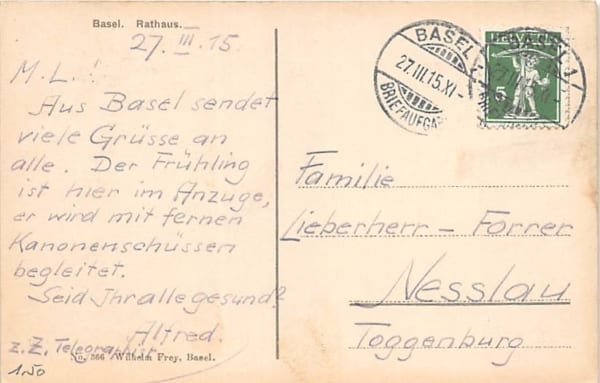 Basel. Rathaus.
27. III. 15.
M. L. !
Aus Basel sendet
viele Grüsse an
alle. Der Frühling
ist hier im Anzuge,
er wird mit fernen
Kanonenschüssen
begleitet.
Seid Ihr alle gesund?
Alfred.
z. Z. Telegraphist
No. 366 Wilhelm Frey, Basel.
1.50
BASEL 1
27.III.15.XI-
BRIEFAUFGABE
HELVETIA
5
BASEL 1
Familie
Lieberherr - Forrer
Nesslau
Toggenburg